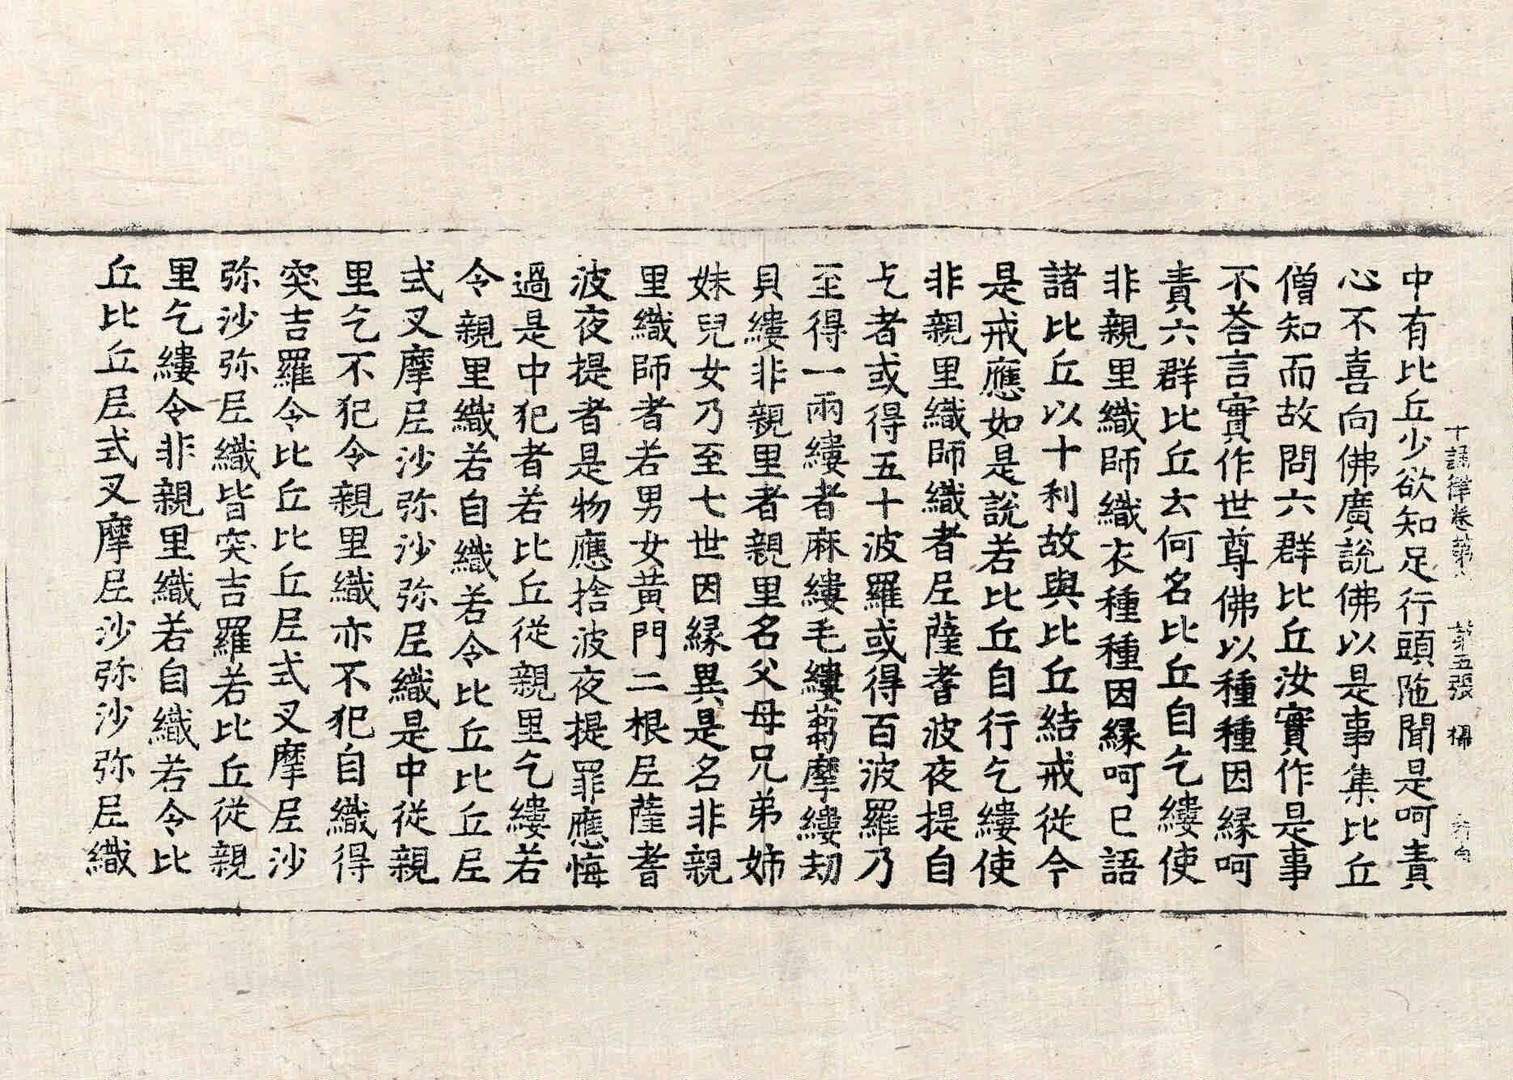 十誦律卷第八 第五張 攝
中有比丘少欲知足行頭陁聞是呵責
心不喜向佛廣說佛以是事集比丘
僧知而故問六群比丘汝實作是事
不荅言實作世尊佛以種種因縁呵
責六群比丘云何名比丘自乞縷使
非親里織師織衣種種因縁呵已語
諸比丘以十利故與比丘結戒從今
是戒應如是說若比丘自行乞縷使
非親里織師織者尼薩耆波夜提自
乞者或得五十波羅或得百波羅乃
至得一兩縷者麻縷毛縷芻摩縷劫
貝縷非親里者親里名父母兄弟姉
妹兒女乃至七世因縁異是名非親
里織師者若男女黃門二根尼薩耆
波夜提者是物應捨波夜提罪應悔
過是中犯者若比丘從親里乞縷若
令親里織若自織若令比丘比丘尼
式叉摩尼沙弥沙弥尼織是中從親
里乞不犯令親里織亦不犯自織得
突吉羅令比丘比丘尼式叉摩尼沙
弥沙弥尼織皆突吉羅若比丘從親
里乞縷令非親里織若自織若令比
丘比丘尼式叉摩尼沙弥沙弥尼織